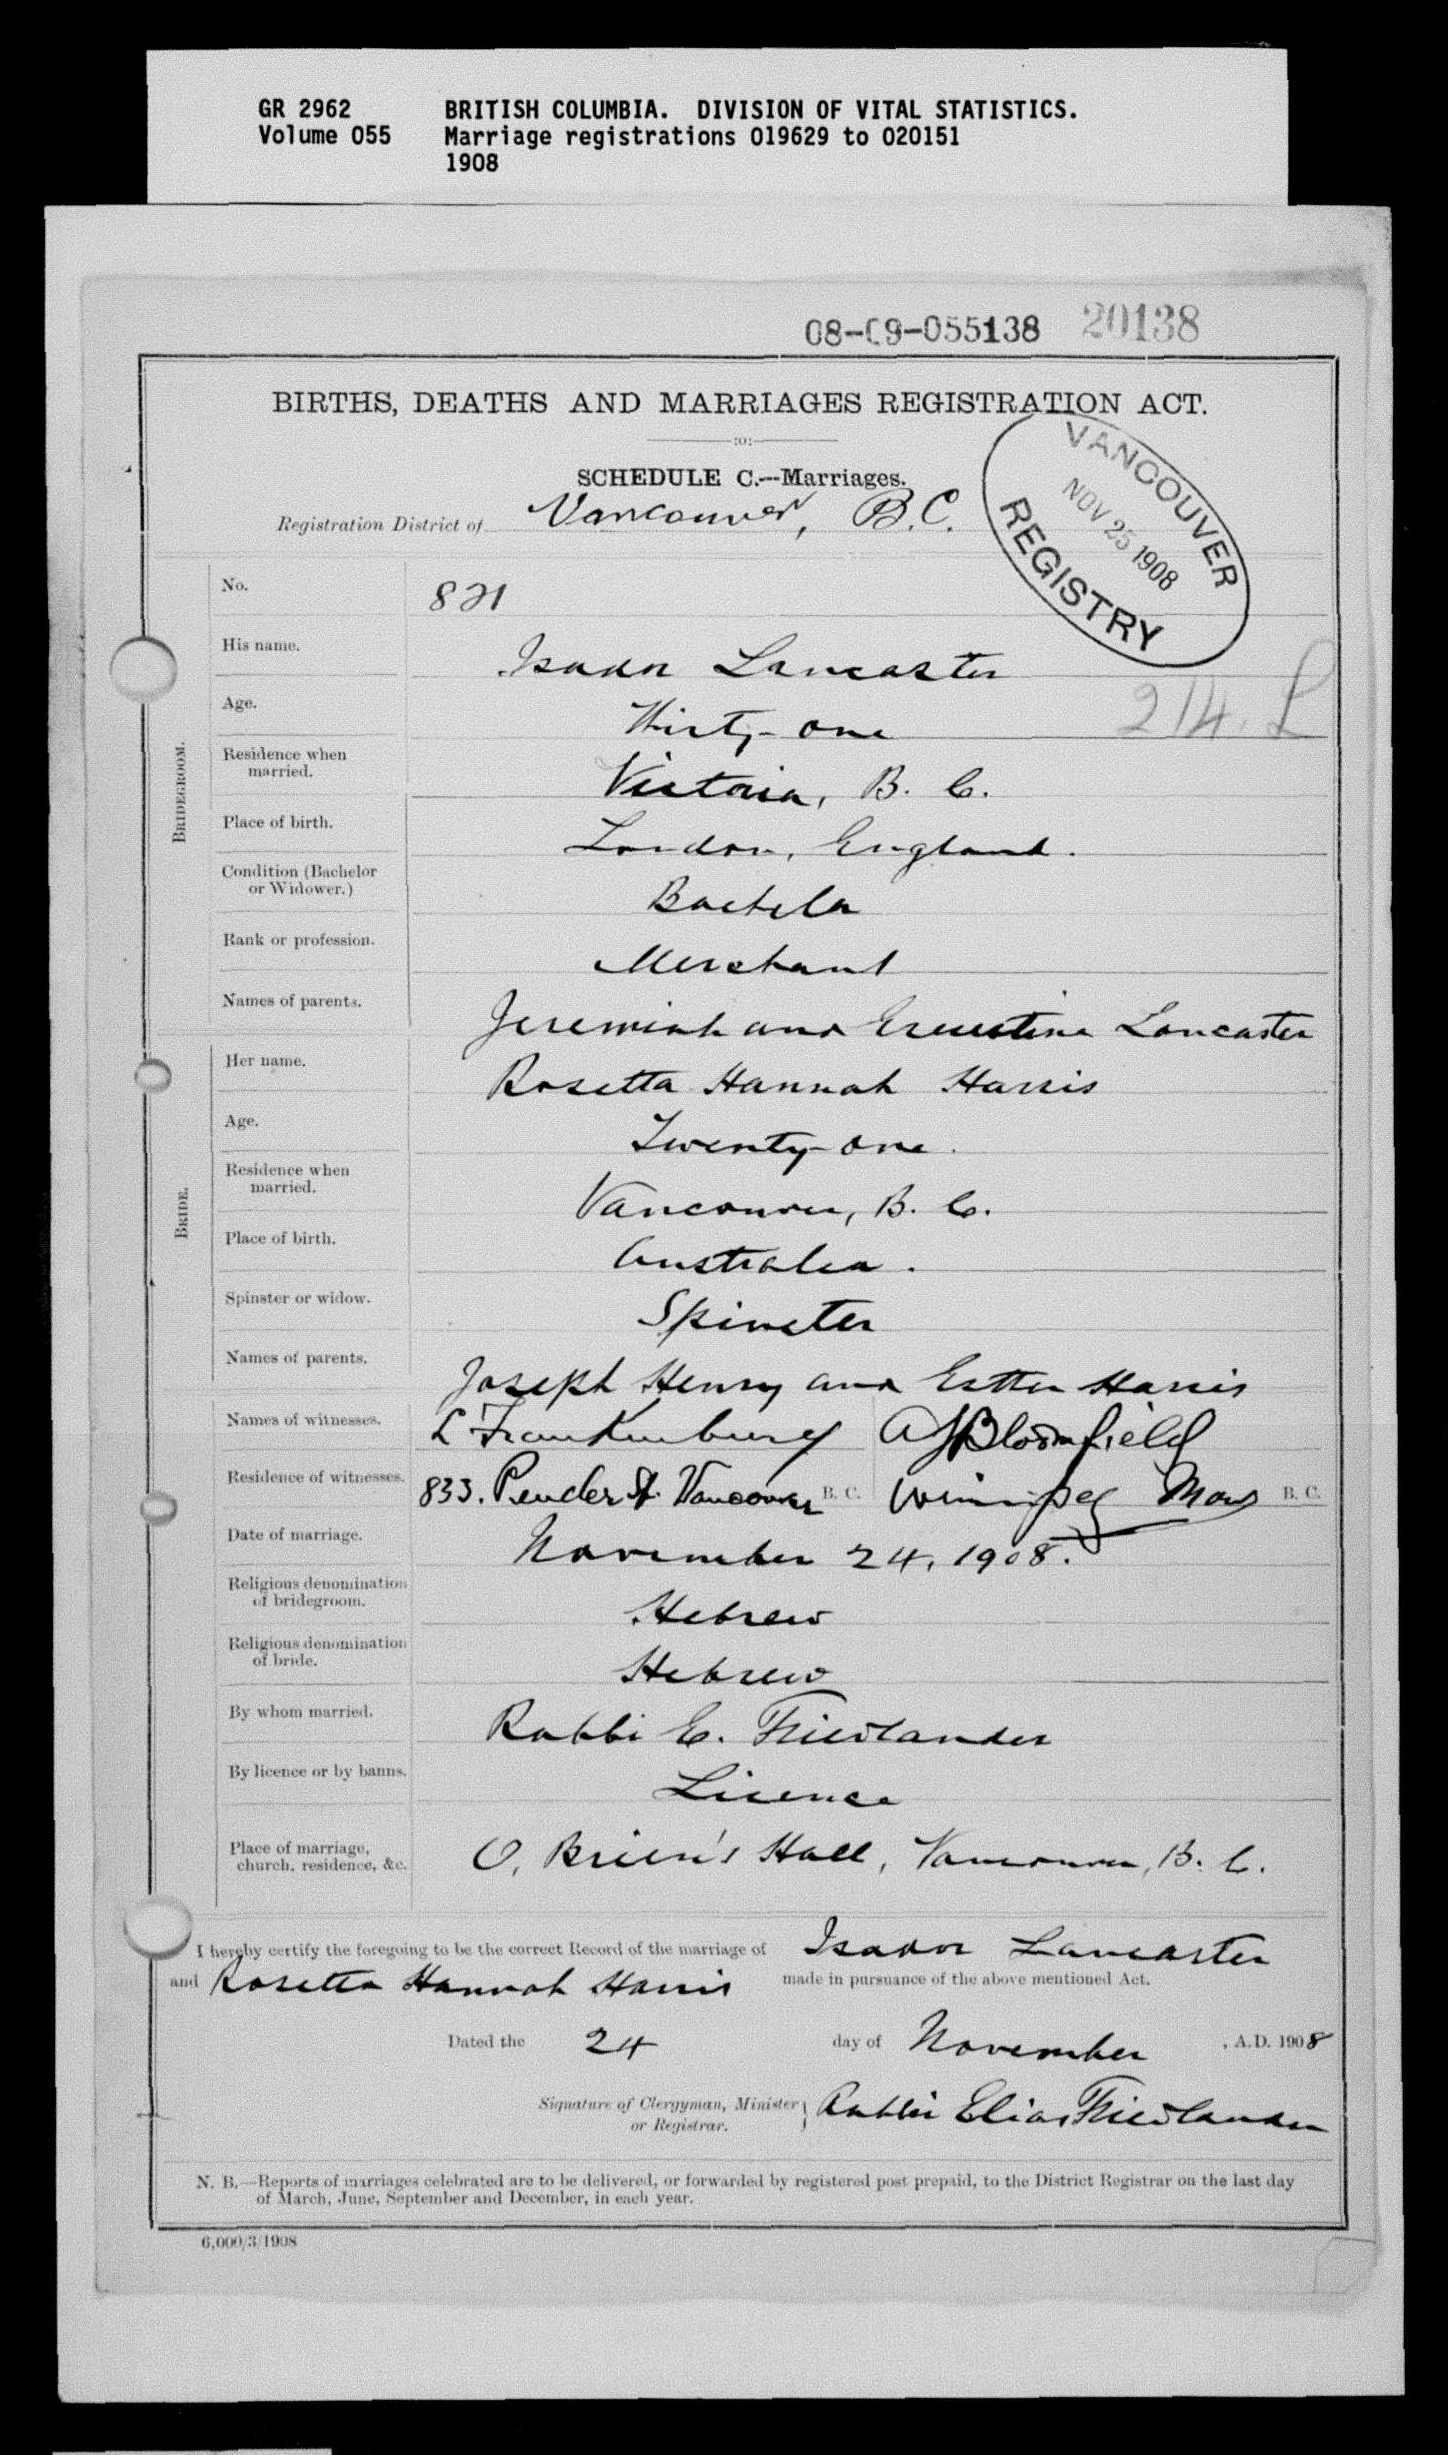 GR 2962 BRITISH COLUMBIA. DIVISION OF VITAL STATISTICS.
Volume 055 Marriage registrations 019629 to 020151
1908
08-09-055138 20138
BIRTHS, DEATHS AND MARRIAGES REGISTRATION ACT.
:o:
SCHEDULE C.--Marriages.
Registration District of Vancouver, B.C.
VANCOUVER
NOV 25 1908
REGISTRY
No. 821
His name. Isador Lancaster
214. L
Age. Thirty-one
Residence when married. Victoria, B. C.
Place of birth. London, England.
Condition (Bachelor or Widower.) Bachelor
Rank or profession. Merchant
Names of parents. Jeremiah and Ernestine Lancaster
BRIDEGROOM.
Her name. Rosetta Hannah Harris
Age. Twenty-one.
Residence when married. Vancouver, B. C.
Place of birth. Australia.
Spinster or widow. Spinster
Names of parents. Joseph Henry and Esther Harris
BRIDE.
Names of witnesses. L Frankenburg AJ Bloomfield
Residence of witnesses. 833. Pender St. Vancouver B. C. Winnipeg Man B. C.
Date of marriage. November 24, 1908.
Religious denomination of bridegroom. Hebrew
Religious denomination of bride. Hebrew
By whom married. Rabbi E. Friedlander
By licence or by banns. Licence
Place of marriage, church, residence, &c. O, Brien's Hall, Vancouver, B. C.
I hereby certify the foregoing to be the correct Record of the marriage of Isador Lancaster
and Rosetta Hannah Harris made in pursuance of the above mentioned Act.
Dated the 24 day of November, A.D. 1908
Signature of Clergyman, Minister or Registrar. } Rabbi Elias Friedlander
N. B.—Reports of marriages celebrated are to be delivered, or forwarded by registered post prepaid, to the District Registrar on the last day
of March, June, September and December, in each year.
6,000/3/1908